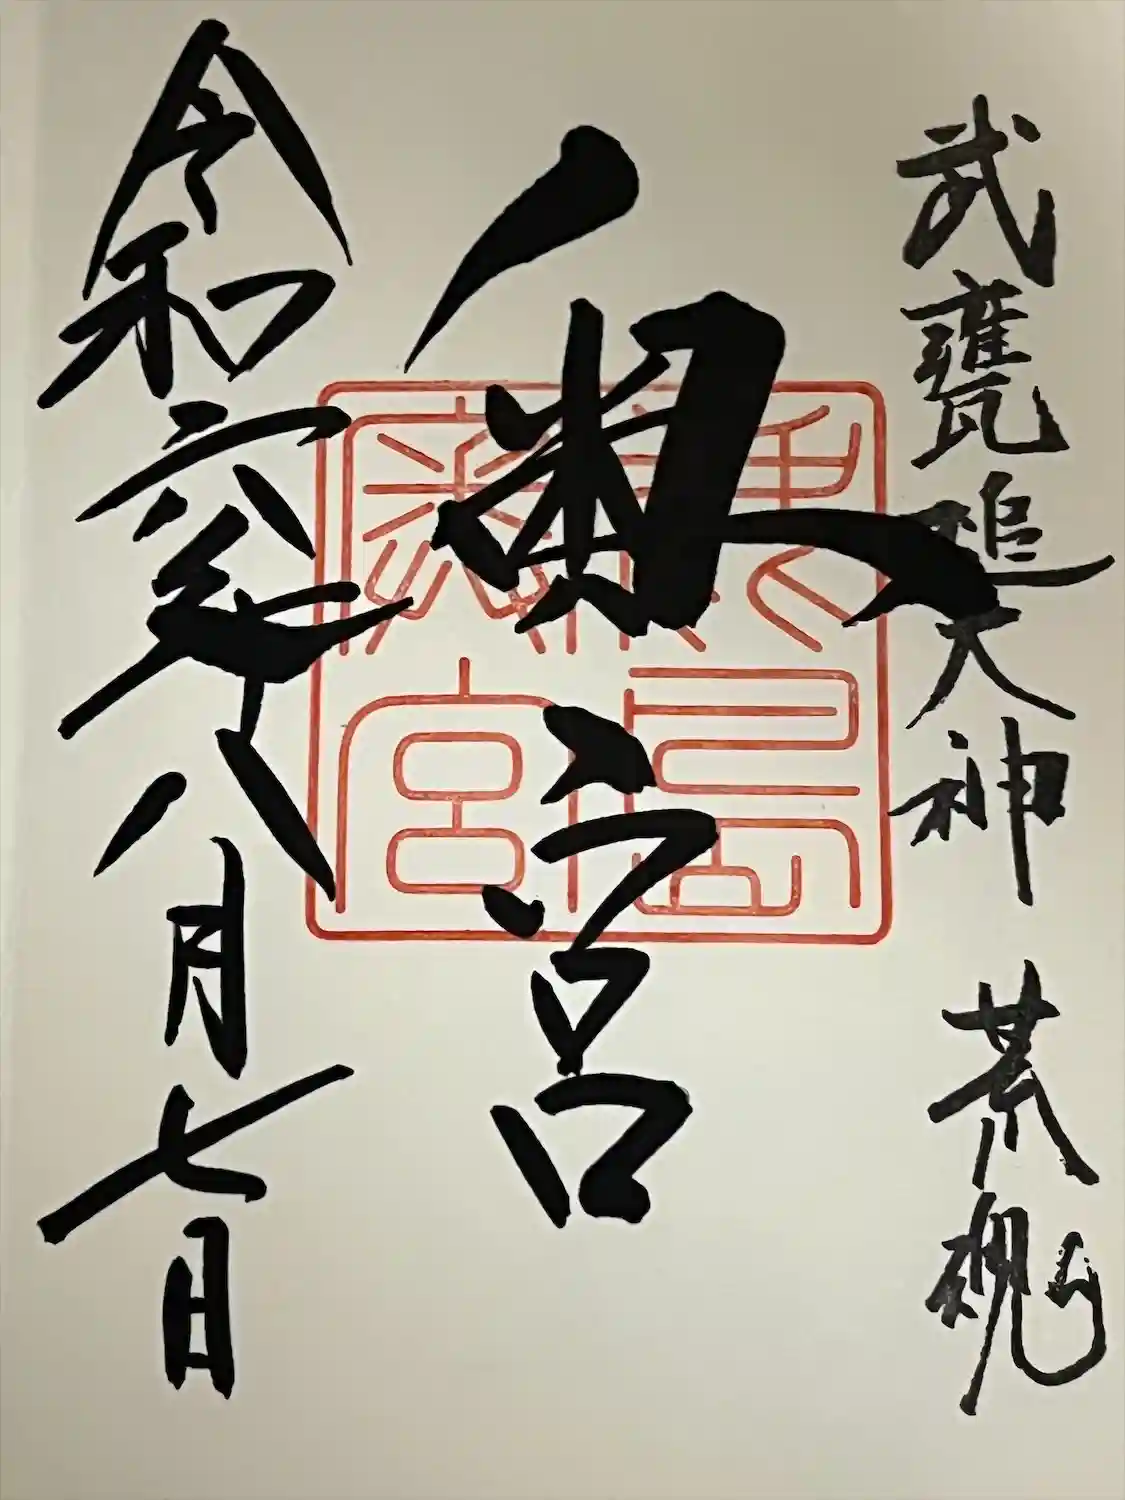 武甕槌大神 荒魂
奥宮
令和六年八月七日